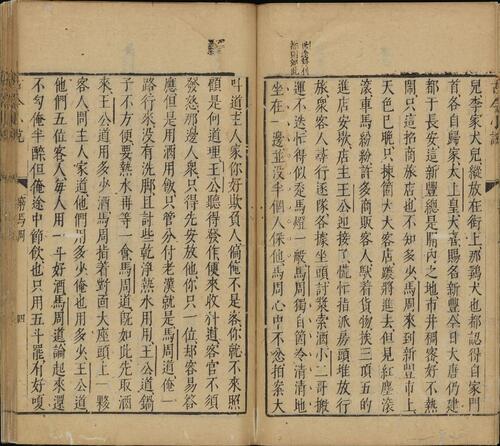 兒李家犬兒縱放在街上那鷄犬也都認得自家門
首各自歸家太上皇大喜賜名新豐今日大唐仍建
都于長安這新豐總是關內之地市井稠密好不熱
鬧只這招商旅店也不知多少馬周來到新豐市上
天色已晚只揀箇大大客店踱將進去但見紅塵滾
滾車馬紛紛許多商販客人馱着貨物挨三頂五的
進店安歇店主王公迎接了慌忙指派房頭堆放行
旅衆客人尋行逐隊各據坐頭討漿索酒小二哥搬
運不迭忙得似走馬燈一般馬周獨自箇冷清清地
坐在一邊並没半個人倸他馬周心中不忿拍案大
叫道主人家你好欺負人偏俺不是客你就不來照
顧是何道理王公聽得發作便來收科道客官不須
發怒那邊人衆只得先安放他你只一位却容易答
應但是用酒用飯只管分付老漢就是馬周道俺一
路行來没有洗脚且討些乾淨熱水用用王公道鍋
子不方便要熱水再等一會馬周道旣如此先取酒
來王公道用多少酒馬周指着對面大座頭上一夥
客人問主人家道他們用多少俺也用多少王公道
他們五位客人每人用一斗好酒馬周道論起來還
不勾俺半醉但俺途中節飲也只用五斗罷有好嗄